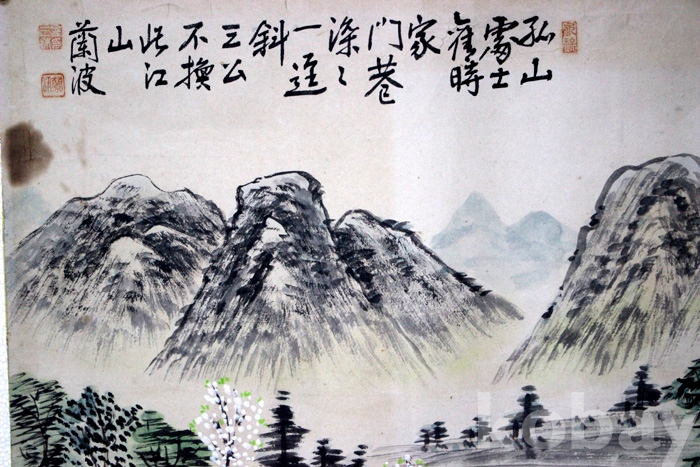 孤山
處士
舊時
家
門巷
深〻
一逕
斜
三公
不換
此江
山
蘭波
kobay